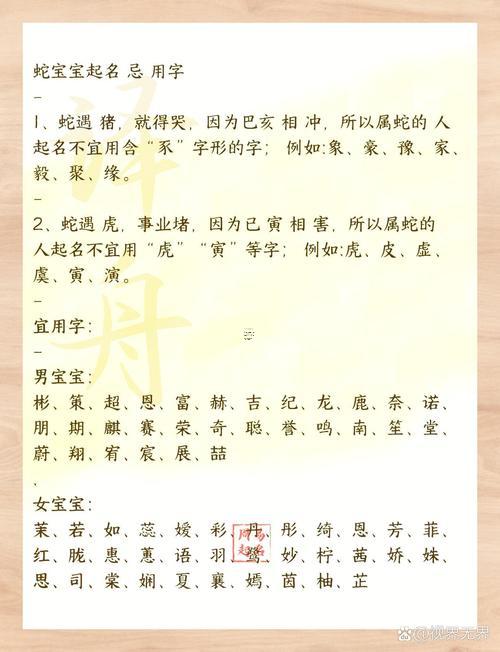 蛇宝宝起名 忌 用字
-
1、蛇遇 猪，就得哭，因为巳亥 相 冲，所以属蛇的 人
起名不宜用含“豕”字形的字； 例如:象、豪、豫、家、
毅、聚、缘。
-
2、蛇遇 虎，事业堵，因为已 寅 相 害，所以属蛇的
人起名不宜用“虎” “寅”等字； 例如:虎、皮、虚、
虞、寅、演。
-
宜用字：
-
男宝宝：
彬、策、超、恩、富、赫、吉、纪、龙、鹿、奈、诺、
朋、期、麒、赛、荣、奇、聪、誉、鸣、南、笙、堂、
蔚、翔、宥、宸、展、喆
.
女宝宝：
茉、若、如、蕊、嫒、彩、丹、彤、绮、恩、芳、菲、
红、胧、惠、蕙、语、羽、鹭、妙、柠、茜、娇、姝、
思、司、棠、娴、夏、襄、嫣、茵、柚、芷
泽舟
起名
@视界无界